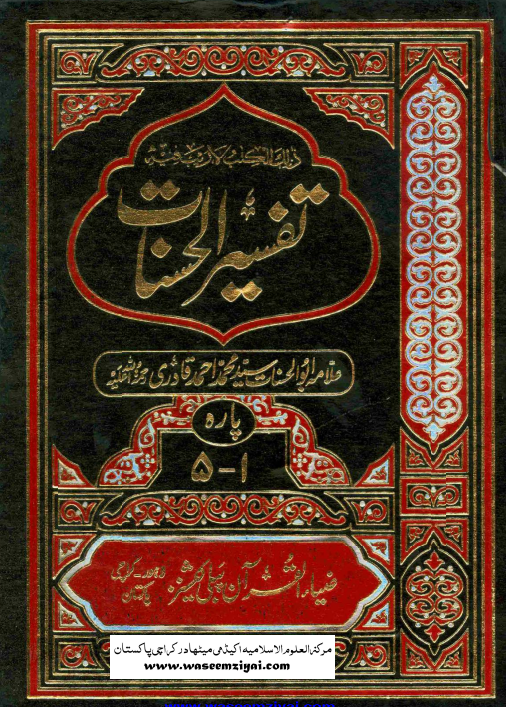 ذٰلک الکتٰب لاریب فیہ
تفسیر الحسنات
علامہ ابوالحسنات سید محمد احمد قادری رحمۃ اللہ علیہ
پارہ
۱-۵
ضیاء القرآن پبلی کیشنز لاہور - کراچی پاکستان
مرکز العلوم الاسلامیہ اکیڈمی میٹھادر کراچی پاکستان
www.waseemziyai.com
www.waseemziyai.com